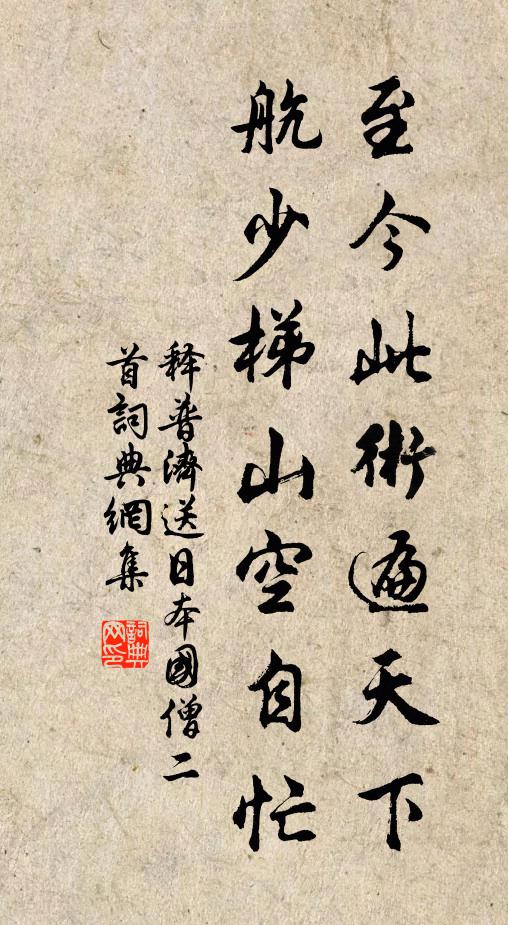 至今此術遍天下
航少梯山空自忙
釋普濟送日本國僧二
首詞典網集
詞典
网印